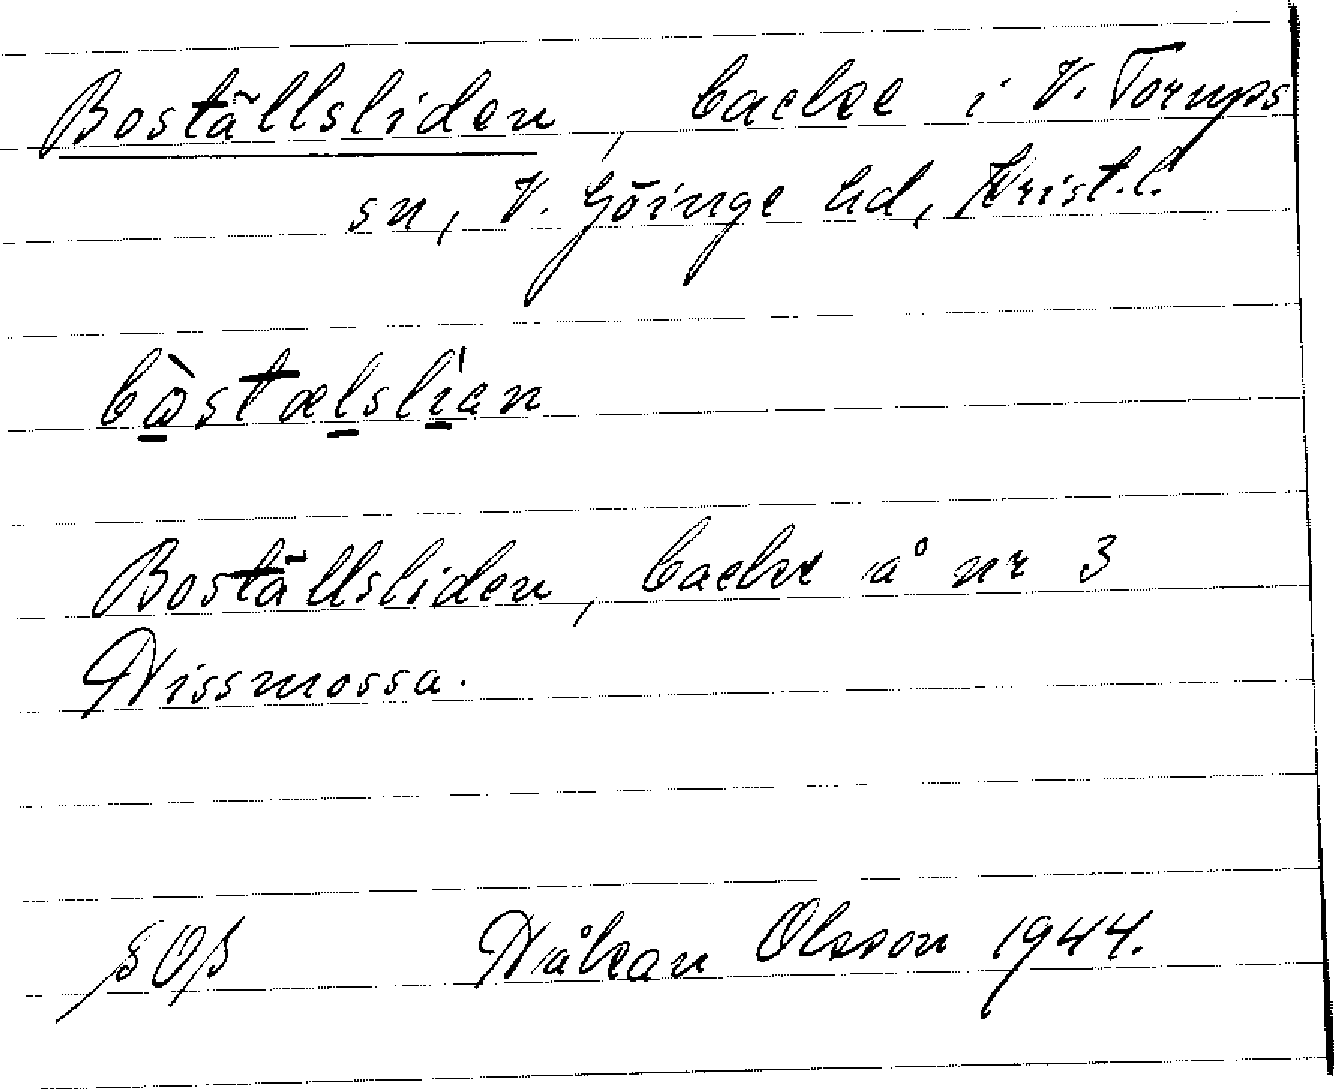 Boställsliden, backe i V. Torups
sn, V. Göinge hd, Krist. l.
bòstælslian
Boställsliden, backe å nr 3
Nissmossa.
SOS Håkan Olsson 1944.